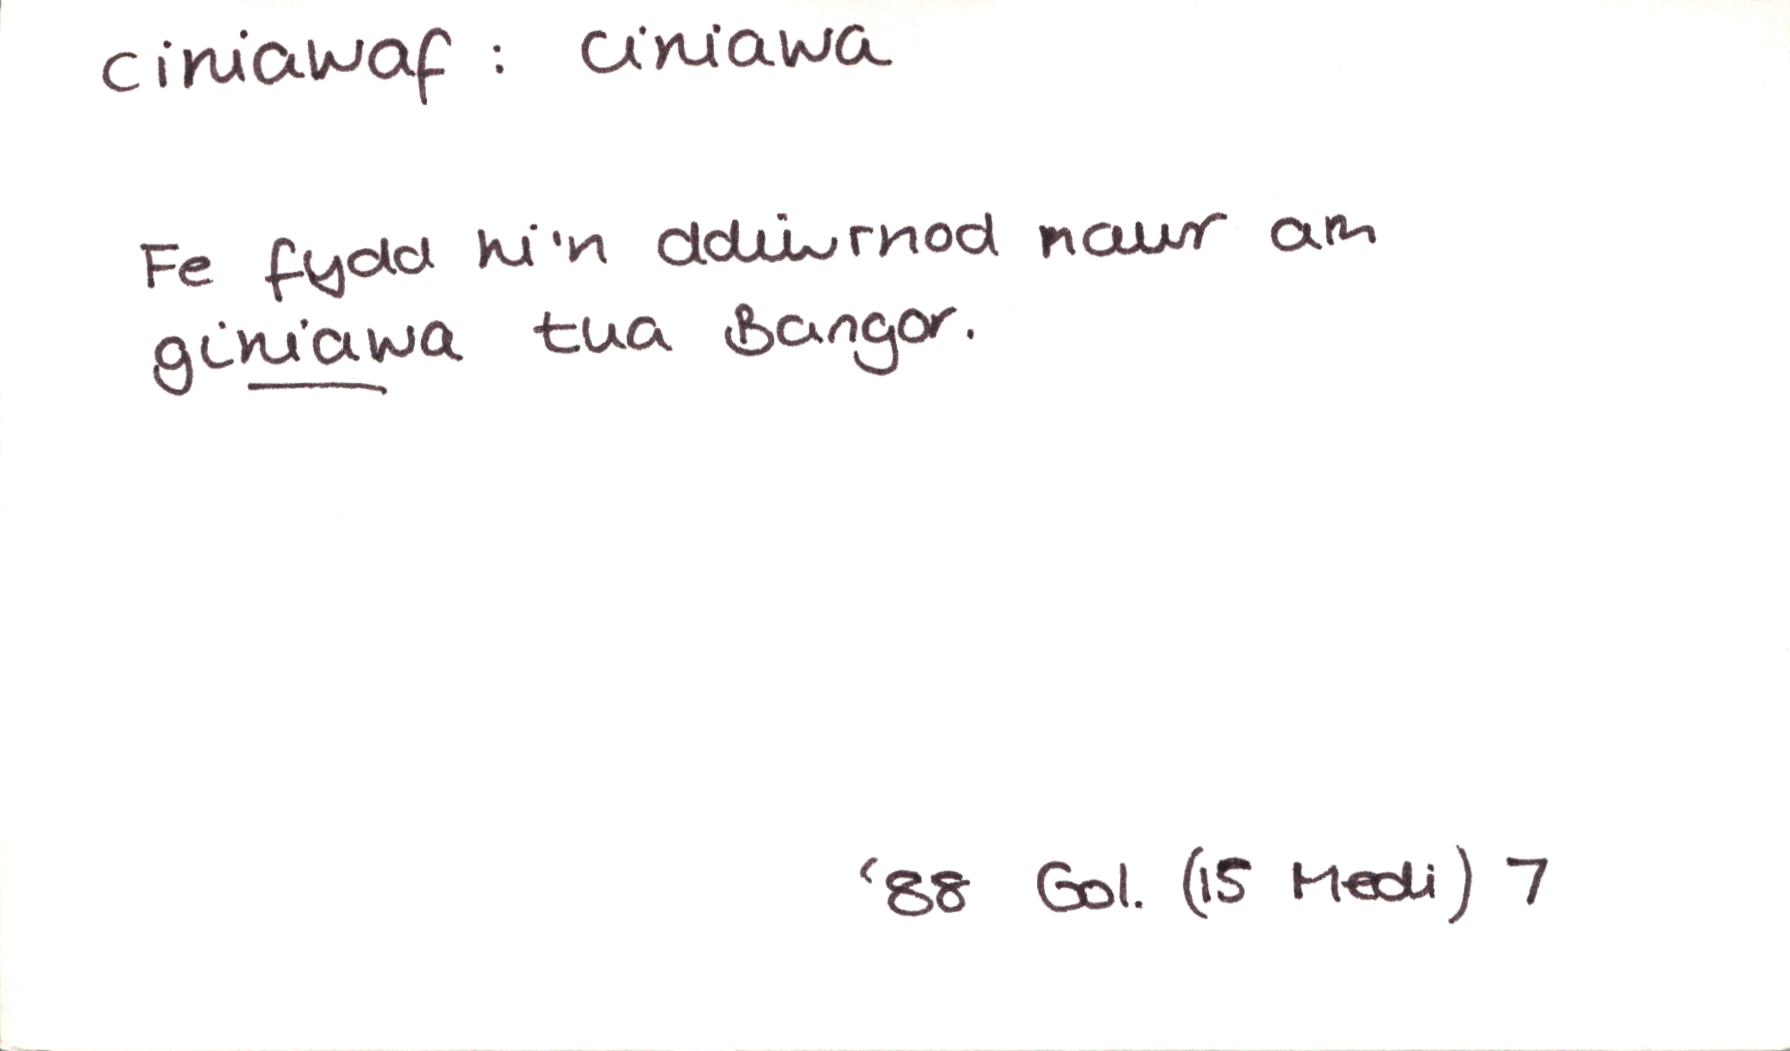 ciniawaf : ciniawa
Fe fydd hi'n ddiwrnod mawr am
giniawa tua Bangor.
'88 Gol. (15 Medi) 7